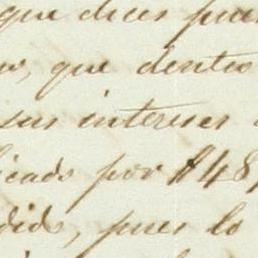 que dices pue
que dentro
sus intereses
icado por $48
didos, pues lo